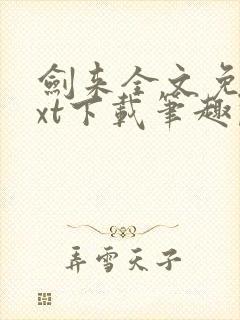 劍来全文免
xt下载筆趣
弄雪天子